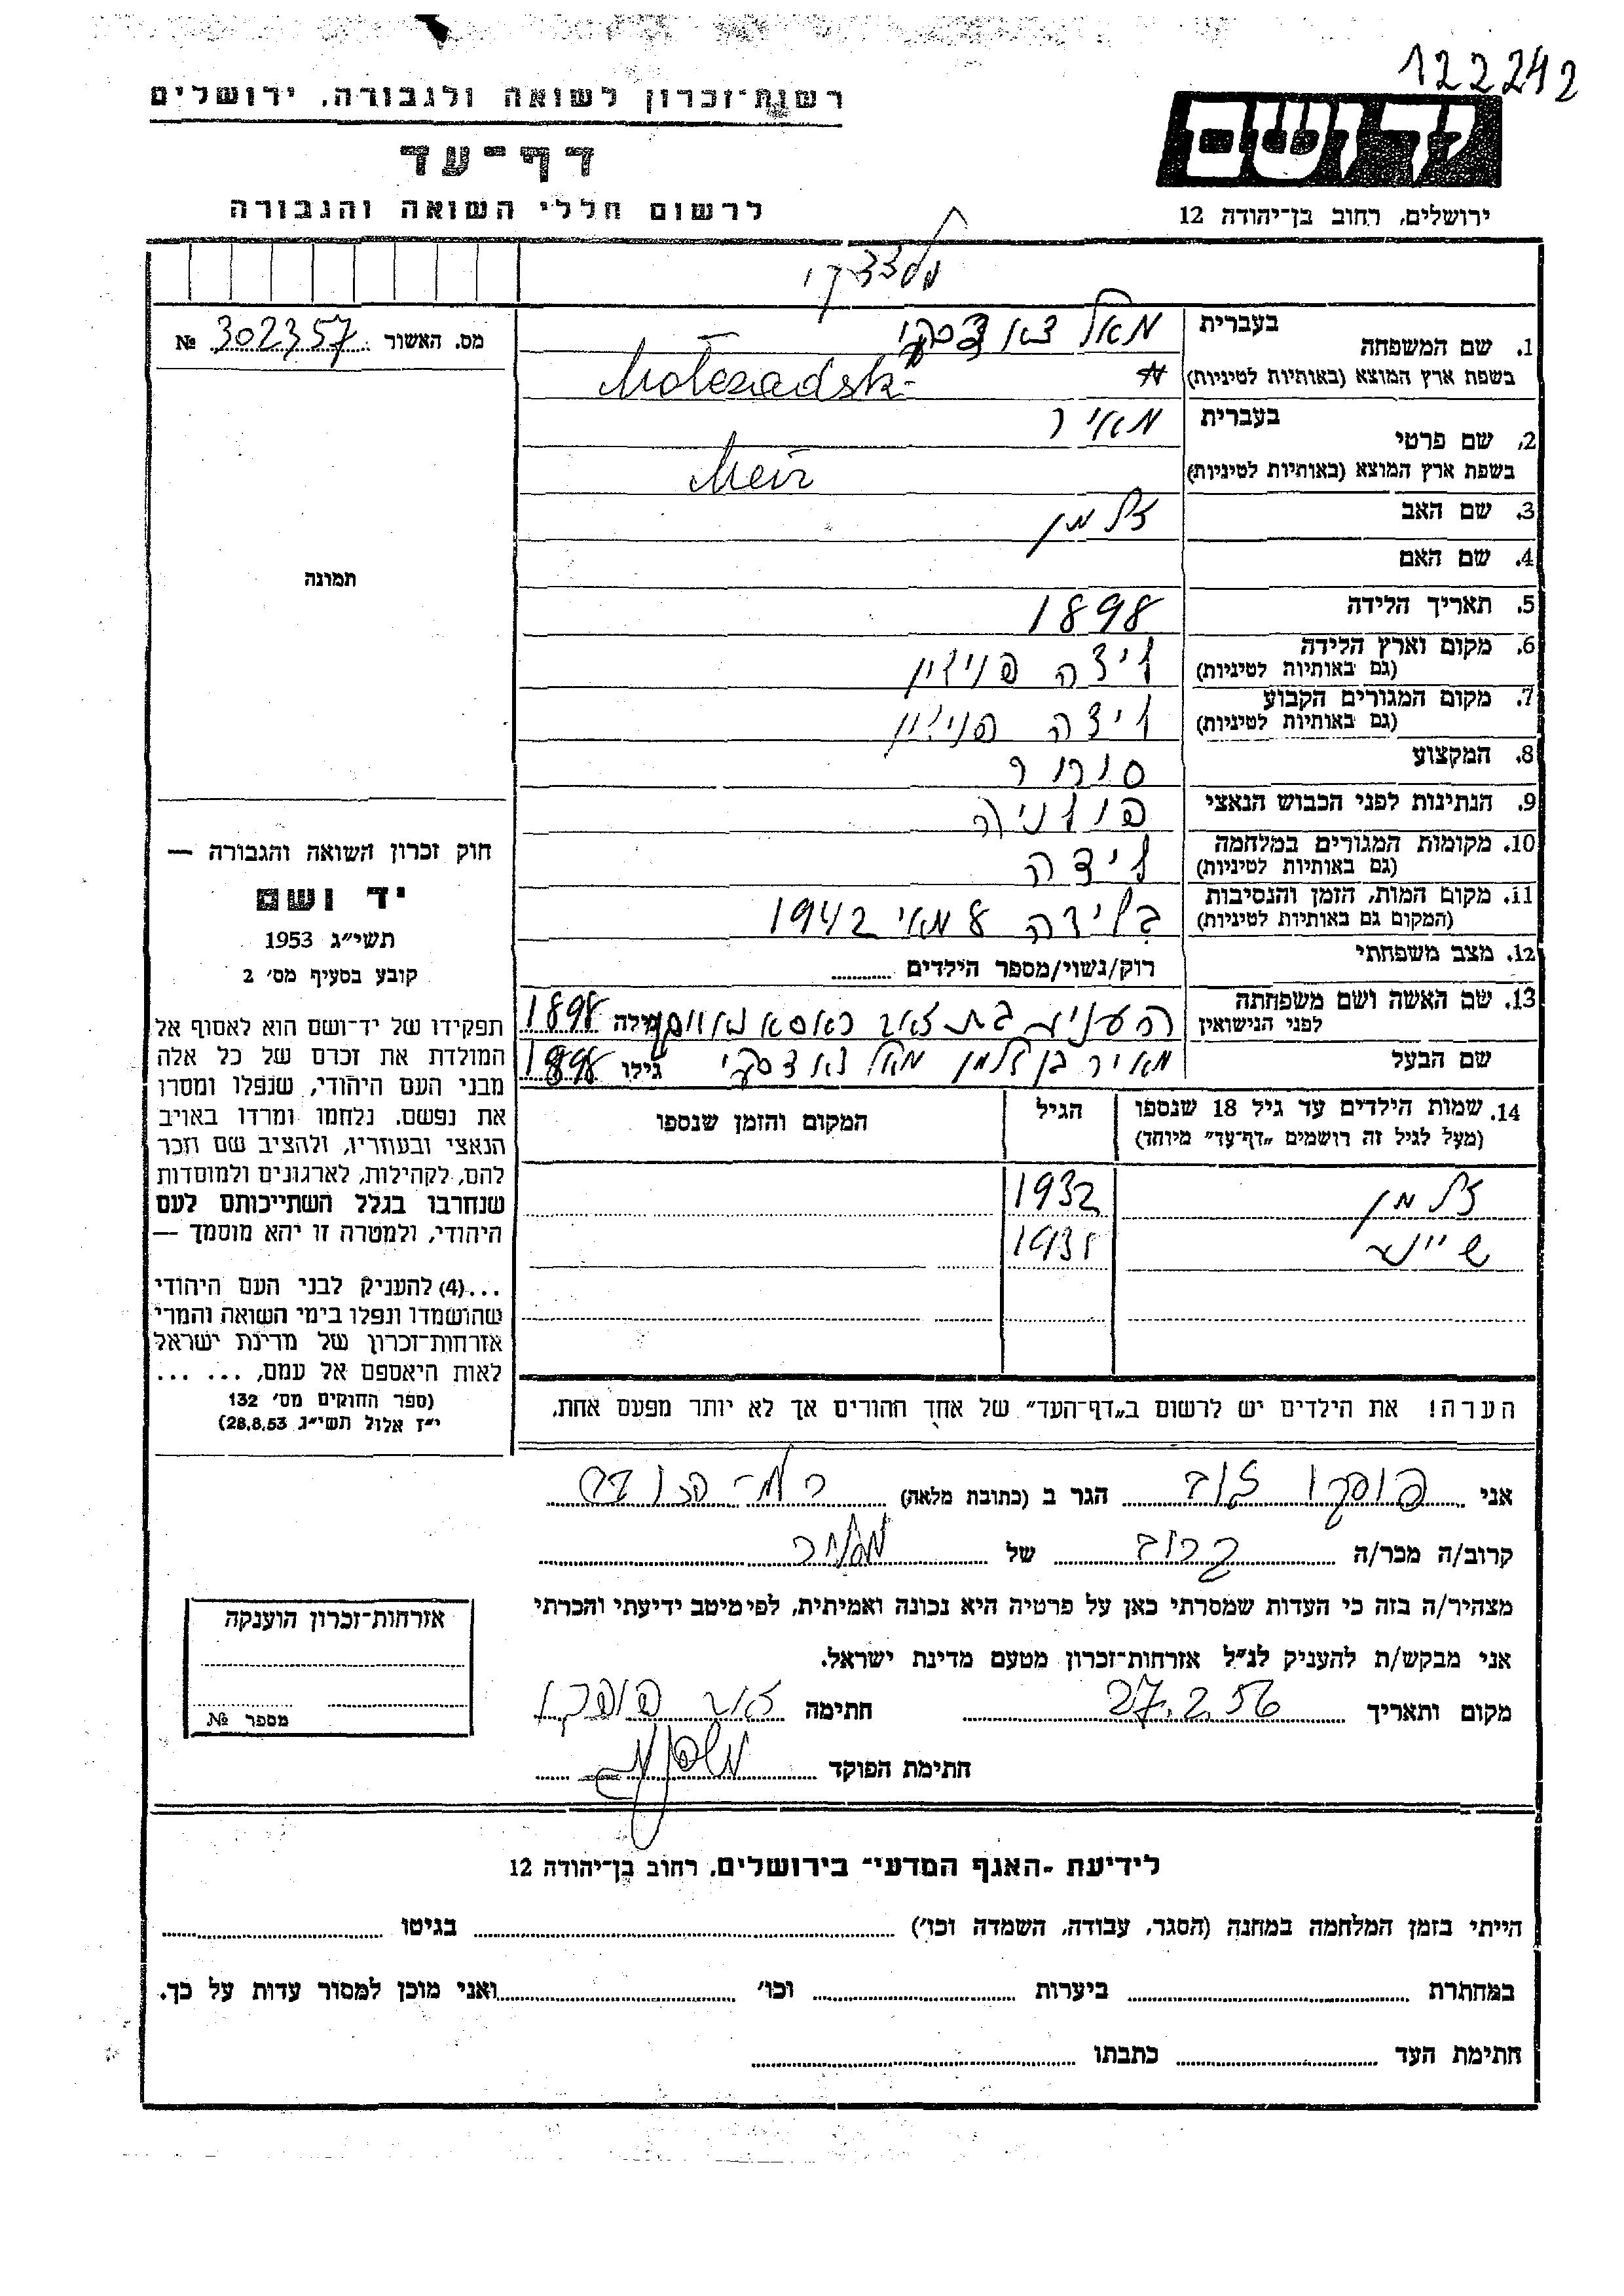 122242
רשות־זכרון לשואה ולגבורה, ירושלים
דף־עד
לרשום חללי השואה והגבורה
יד ושם
ירושלים, רחוב בן־יהודה 12
מס. האשור 302357 №
1. שם המשפחה
בעברית
בשפת ארץ המוצא (באותיות לטיניות)
2. שם פרטי
בעברית מאיר
בשפת ארץ המוצא (באותיות לטיניות) Meir
3. שם האב זלמן
4. שם האם
5. תאריך הלידה 1898
6. מקום וארץ הלידה לידה פולין
(גם באותיות לטיניות)
7. מקום המגורים הקבוע לידה פולין
(גם באותיות לטיניות)
8. המקצוע סוחר
9. הנתינות לפני הכבוש הנאצי פולניה
10. מקומות המגורים במלחמה לידה
(גם באותיות לטיניות)
11. מקום המות, הזמן והנסיבות בלידה 8 מאי 1942
(המקום גם באותיות לטיניות)
12. מצב משפחתי רוק/נשוי/מספר הילדים
13. שם האשה ושם משפחתה
לפני הנישואין גילה 1898
שם הבעל מאיר בן זלמן גילו 1898
14. שמות הילדים עד גיל 18 שנספו הגיל המקום והזמן שנספו
(מעל לגיל זה רושמים „דף־עד" מיוחד)
זלמן 1932
תמונה
חוק זכרון השואה והגבורה —
יד ושם
תשי״ג 1953
קובע בסעיף מס׳ 2
תפקידו של יד־ושם הוא לאסוף אל
המולדת את זכרם של כל אלה
מבני העם היהודי, שנפלו ומסרו
את נפשם, נלחמו ומרדו באויב
הנאצי ובעוזריו, ולהציב שם וזכר
להם, לקהילות, לארגונים ולמוסדות
שנחרבו בגלל השתייכותם לעם
היהודי, ולמטרה זו יהא מוסמך —
...(4) להעניק לבני העם היהודי
שהושמדו ונפלו בימי השואה והמרי
אזרחות־זכרון של מדינת ישראל
לאות היאספם אל עמם, ... ...
(ספר החוקים מס׳ 132
י״ז אלול תשי״ג 28.8.53)
הערה! את הילדים יש לרשום ב„דף־העד" של אחד ההורים אך לא יותר מפעם אחת.
אני הגר ב (כתובת מלאה)
קרוב/ה מכר/ה קרוב של
מצהיר/ה בזה כי העדות שמסרתי כאן על פרטיה היא נכונה ואמיתית, לפי מיטב ידיעתי והכרתי
אני מבקש/ת להעניק לנ״ל אזרחות־זכרון מטעם מדינת ישראל.
מקום ותאריך 27.2.56 חתימה
חתימת הפוקד
אזרחות־זכרון הוענקה
מספר №
לידיעת ־האגף המדעי־ בירושלים, רחוב בן־יהודה 12
הייתי בזמן המלחמה במחנה (הסגר, עבודה, השמדה וכו׳) בגיטו
במחתרת ביערות וכו׳ ואני מוכן למסור עדות על כך.
חתימת העד כתבתו